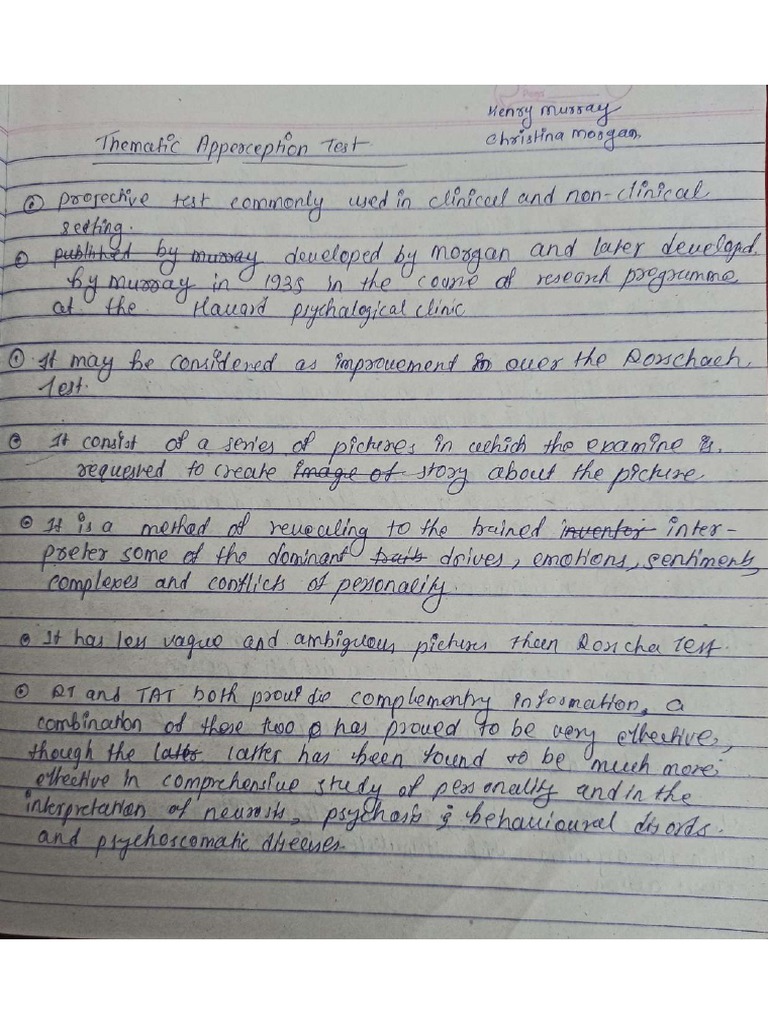 Henry Murray
Christina Morgan.
Thematic Apperception Test.
Projective test commonly used in clinical and non-clinical
setting.
published by murray developed by morgan and later developd.
by murray in 1935 in the course of research programme
at the Havard psychalogical clinic
It may be considered as improvement in over the Rorschach.
Test.
It consist of a series of pictures in which the examine is.
requested to create image of story about the picture
It is a method of revealing to the trained inventor inter-
preter some of the dominant traits drives, emotions, sentiments,
complexes and conflicts of personality.
It has less vague and ambiguous pictures than Rorscha Test.
RT and TAT both provide complementry information. a
combination of these two has proved to be very effective,
though the later latter has been found to be much more
effective in comprehensive study of personality and in the
interpretation of neurosis, psychosis & behavioural disords.
and psychoscomatic diseases.